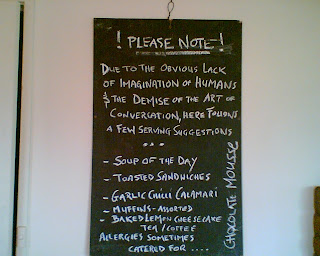 ! PLEASE NOTE !
DUE TO THE OBVIOUS LACK
OF IMAGINATION OF HUMANS
& THE DEMISE OF THE ART OF
CONVERSATION, HERE FOLLOWS
A FEW SERVING SUGGESTIONS
...
- SOUP OF THE DAY
- TOASTED SANDWICHES
- GARLIC CHILLI CALAMARI
- MUFFINS - ASSORTED
- BAKED LEMON CHEESECAKE
TEA / COFFEE
ALLERGIES SOMETIMES
CATERED FOR ....
CHOCOLATE MOUSSE